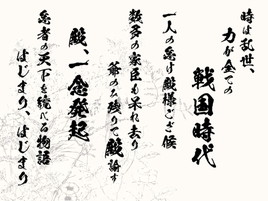 時は乱世、
力が全ての
戦国時代
一人の愚け殿様ござ候
数多の家臣も呆れ去り
爺のみ残りて殿諭す
殿、一念発起
愚者の天下を統べる物語
はじまり、はじまり